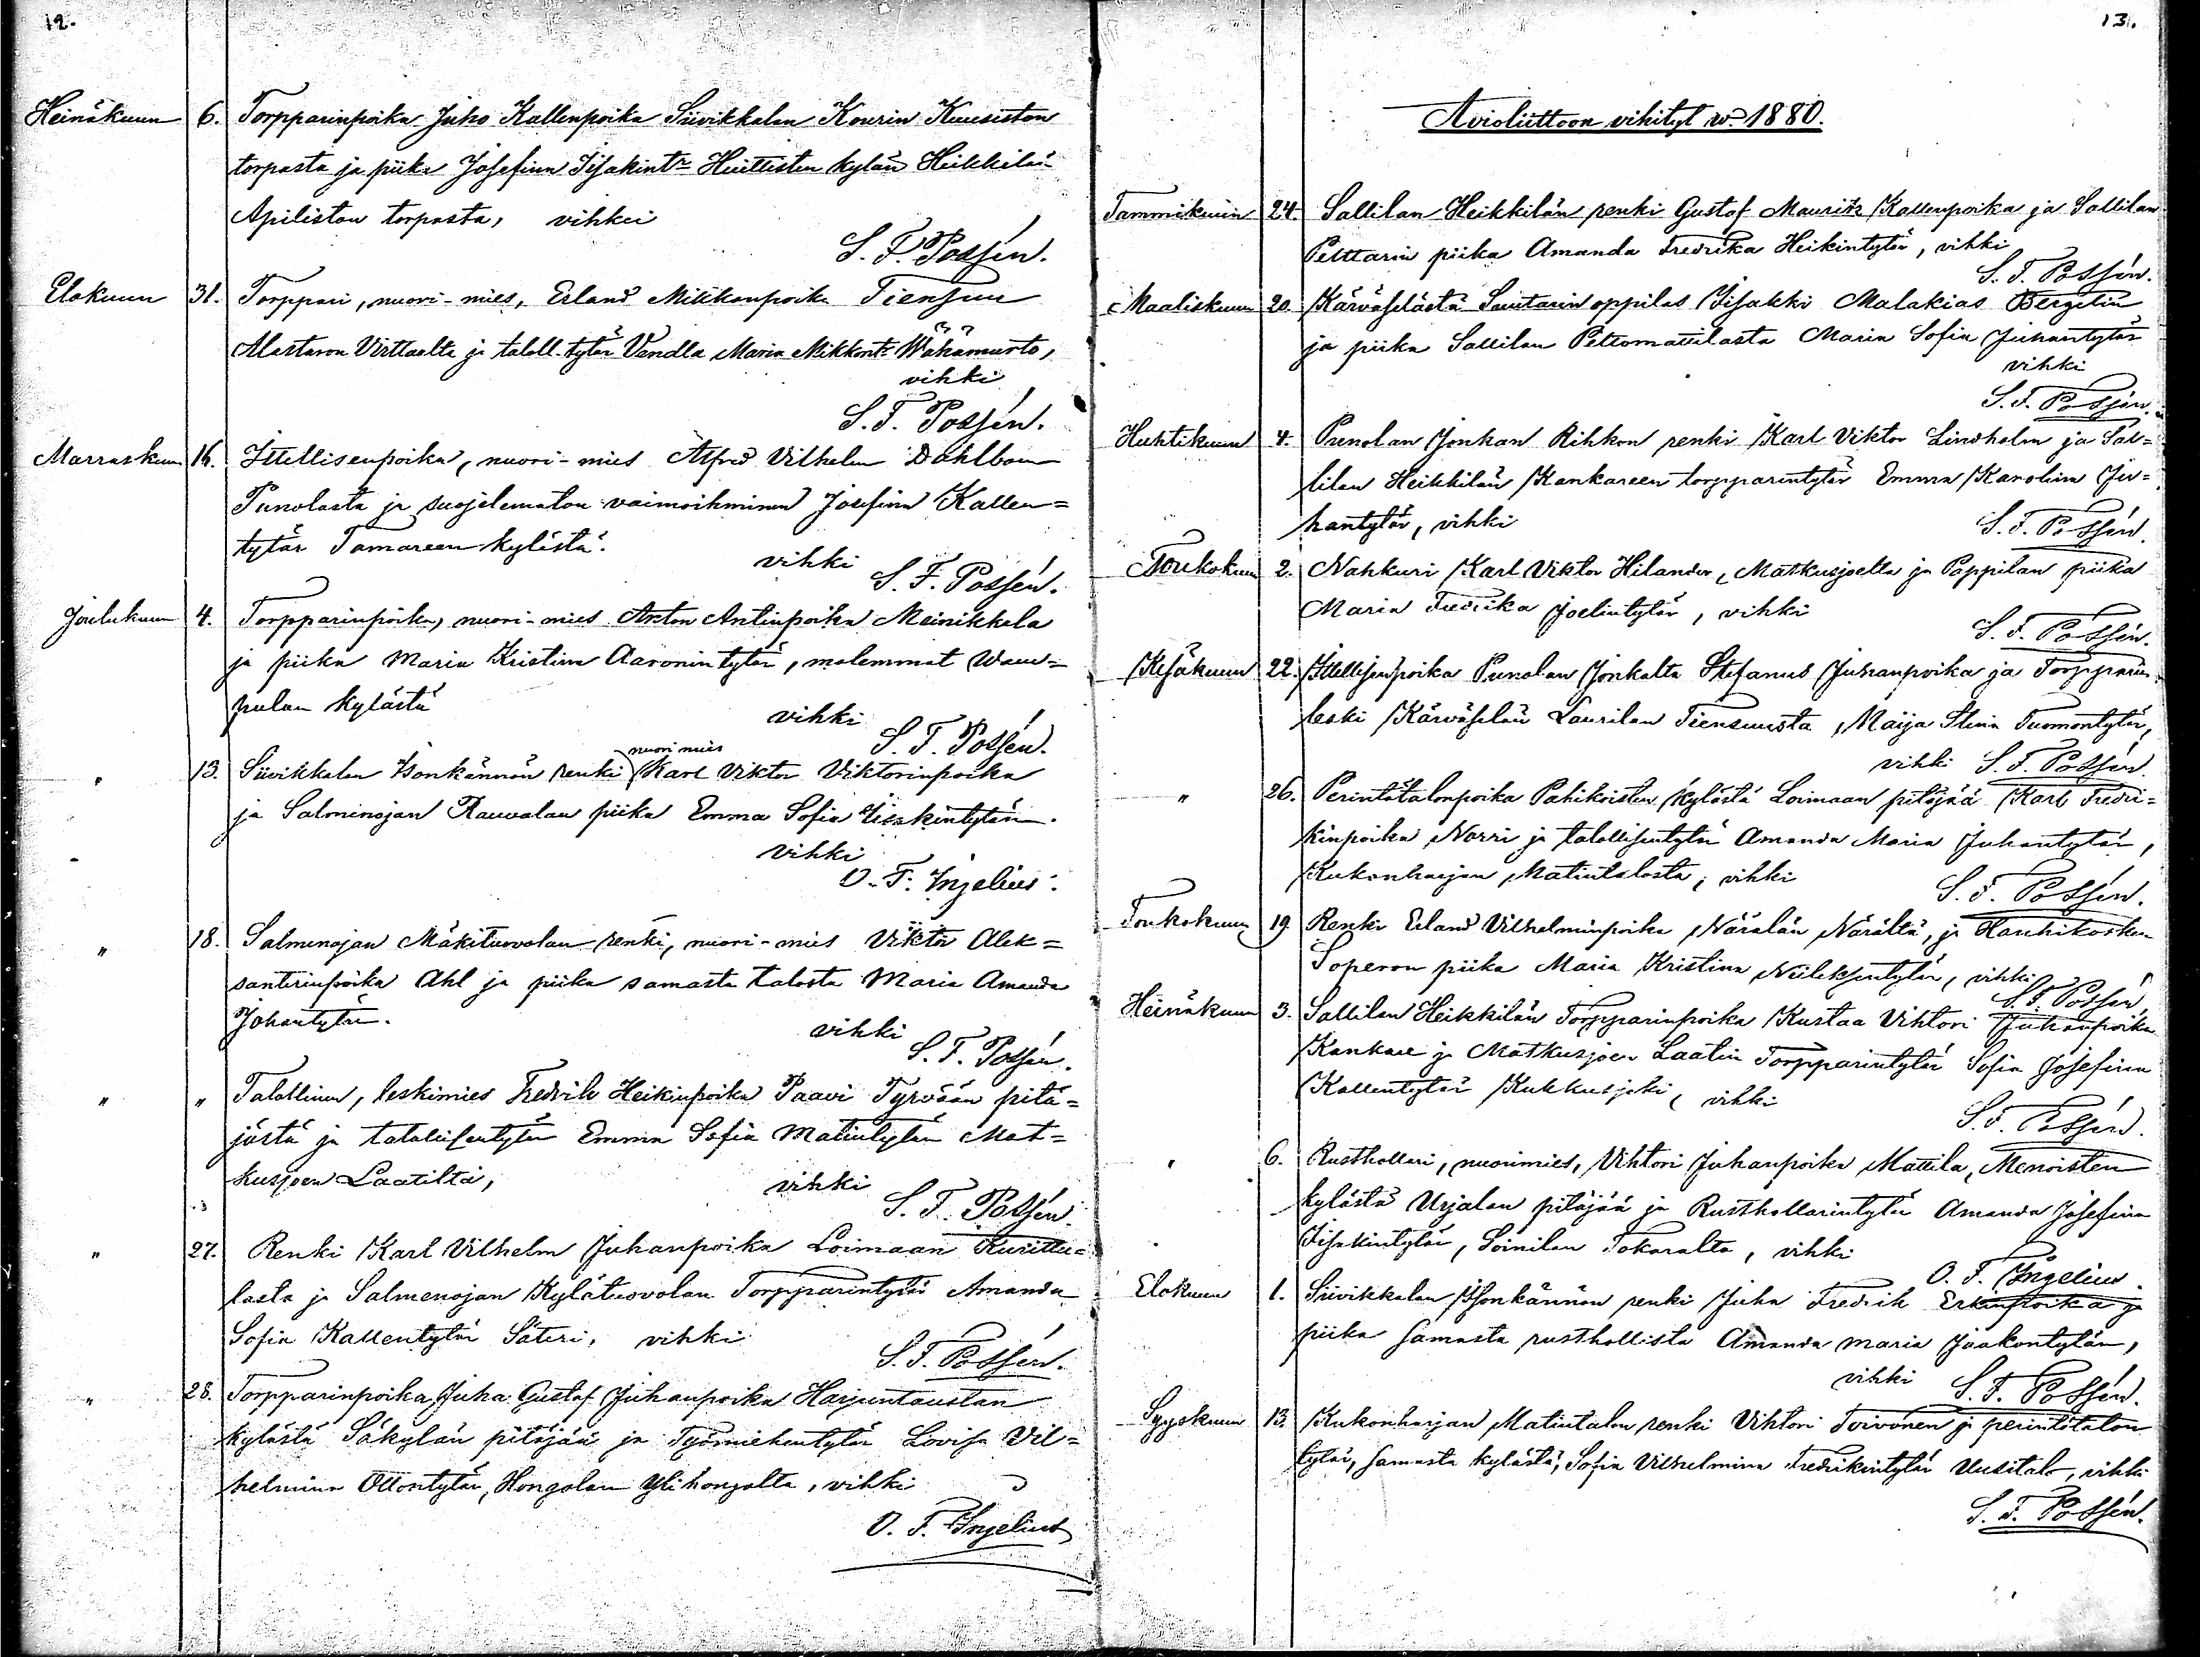 12.
Heinäkuun 6. Torpparinpoika Juho Kallenpoika Siivikkalan Kourin Kuusiston
torpasta ja piika Josefina Iisakintr Huittisten kylän Heikkilän
Apiliston torpasta, vihki
S. F. Possén.
Elokuun 31. Torppari, nuori-mies, Erland Mikkonpoika Tiensuu
Alastaron Virttaalta ja taloll. tytär Vendla Maria Mikkontr Wähämurto,
vihki
S. F. Possén.
Marraskuun 16. Itellisenpoika, nuori-mies Alfred Vilhelm Dahlbom
Punolasta ja suojelematon vaimoihminen Josefina Kallen=
tytär Tamareen kylästä.
vihki
S. F. Possén.
Joulukuun 4. Torpparinpoika, nuori-mies Anton Antinpoika Meinikkala
ja piika Maria Kristina Aaronintytär, molemmat Wam=
pulan kylästä
vihki
S. F. Possén.
" 13. Siivikkalan Isonkännön renki nuori mies Karl Viktor Viktorinpoika
ja Salminojan Rauvolan piika Emma Sofia Iisakintytär.
vihki
O. F. Ingelius.
" 18. Salmenojan Mäkituovolan renki, nuori-mies Viktor Alek=
santerinpoika Ahl ja piika samasta talosta Maria Amanda
Johantytär.
vihki
S. F. Possén.
" " Talollinen, leskimies Fredrik Heikinpoika Paavi Tyrvään pitä=
jästä ja talollisentytär Emma Sofia Matintytär Mat=
kusjoen Laatilta,
vihki
S. F. Possén.
" 27. Renki Karl Vilhelm Juhanpoika Loimaan Kurittu=
lasta ja Salmenojan Kylätuovolan Torpparintytär Amanda
Sofia Kallentytär Säteri, vihki
S. F. Possén.
" 28. Torpparinpoika Juha Gustaf Juhanpoika Harjuntaustan
kylästä Säkylän pitäjää ja Työmiehentytär Lovisa Vil=
helmina Ottontytär, Hongolan Ylihongolta, vihki
O. F. Ingelius
13.
Avioliittoon vihityt v. 1880.
Tammikuun 24. Sallilan Heikkilän renki Gustaf Maurits Kallenpoika ja Sallilan
Pelttarin piika Amanda Fredrika Heikintytär, vihki
S. F. Possén.
Maaliskuun 20. Kärväselästä Suutarin oppilas Iisakki Malakias Bergelin
ja piika Sallilan Peltomattilasta Maria Sofia Juhantytär
vihki
S. F. Possén.
Huhtikuun 4. Punolan Jonkan Rihkon renki Karl Viktor Lindholm ja Sal=
lilan Heikkilän Kankareen torpparintytär Emma Karolina Ju=
hantytär, vihki
S. F. Possén.
Toukokuun 2. Nahkuri Karl Viktor Hilander, Matkusjoelta ja Pappilan piika
Maria Fredrika Joelintytär, vihki
S. F. Possén.
Kesäkuun 22. Itellisenpoika Punolan Jonkalta Stefanus Juhanpoika ja Torpparin
leski Kärväselän Laurilan Tiensuusta, Maija Stina Tuomontytär,
vihki S. F. Possén.
" 26. Perintötalonpoika Pahikoisten kylästä Loimaan pitäjää Karl Fredri=
kinpoika Norri ja talollisentytär Amanda Maria Juhantytär,
Kukonharjan Matintalosta, vihki
S. F. Possén.
Toukokuun 19 Renki Erland Vilhelminpoika Närälän Närältä, ja Hanhikosken
Soperon piika Maria Kristina Neileksentytär, vihki
S. F. Possén
Heinäkuun 3. Sallilan Heikkilän Torpparinpoika Kustaa Vihtori Juhanpoika
Kankare ja Matkusjoen Laatin Torpparintytär Sofia Josefina
Kallentytär Kukkusjoki, vihki
S. F. Possén.
" 6. Rusthollari, nuorimies, Vihtori Juhanpoika Mattila, Menoisten
kylästä Urjalan pitäjää ja Rusthollarintytär Amanda Josefina
Iisakintytär, Soinilan Tokaralta, vihki
O. F. Ingelius.
Elokuun 1. Siivikkalan Isonkännön renki Juha Fredrik Erkinpoika ja
piika samasta rusthollista Amanda Maria Jaakontytär,
vihki S. F. Possén.
Syyskuun 13. Kukonharjan Matintalon renki Vihtori Toivonen ja perintötalon
tytär, samasta kylästä, Sofia Vilhelmina Fredrikintytär Uusitalo, vihki
S. F. Possén.